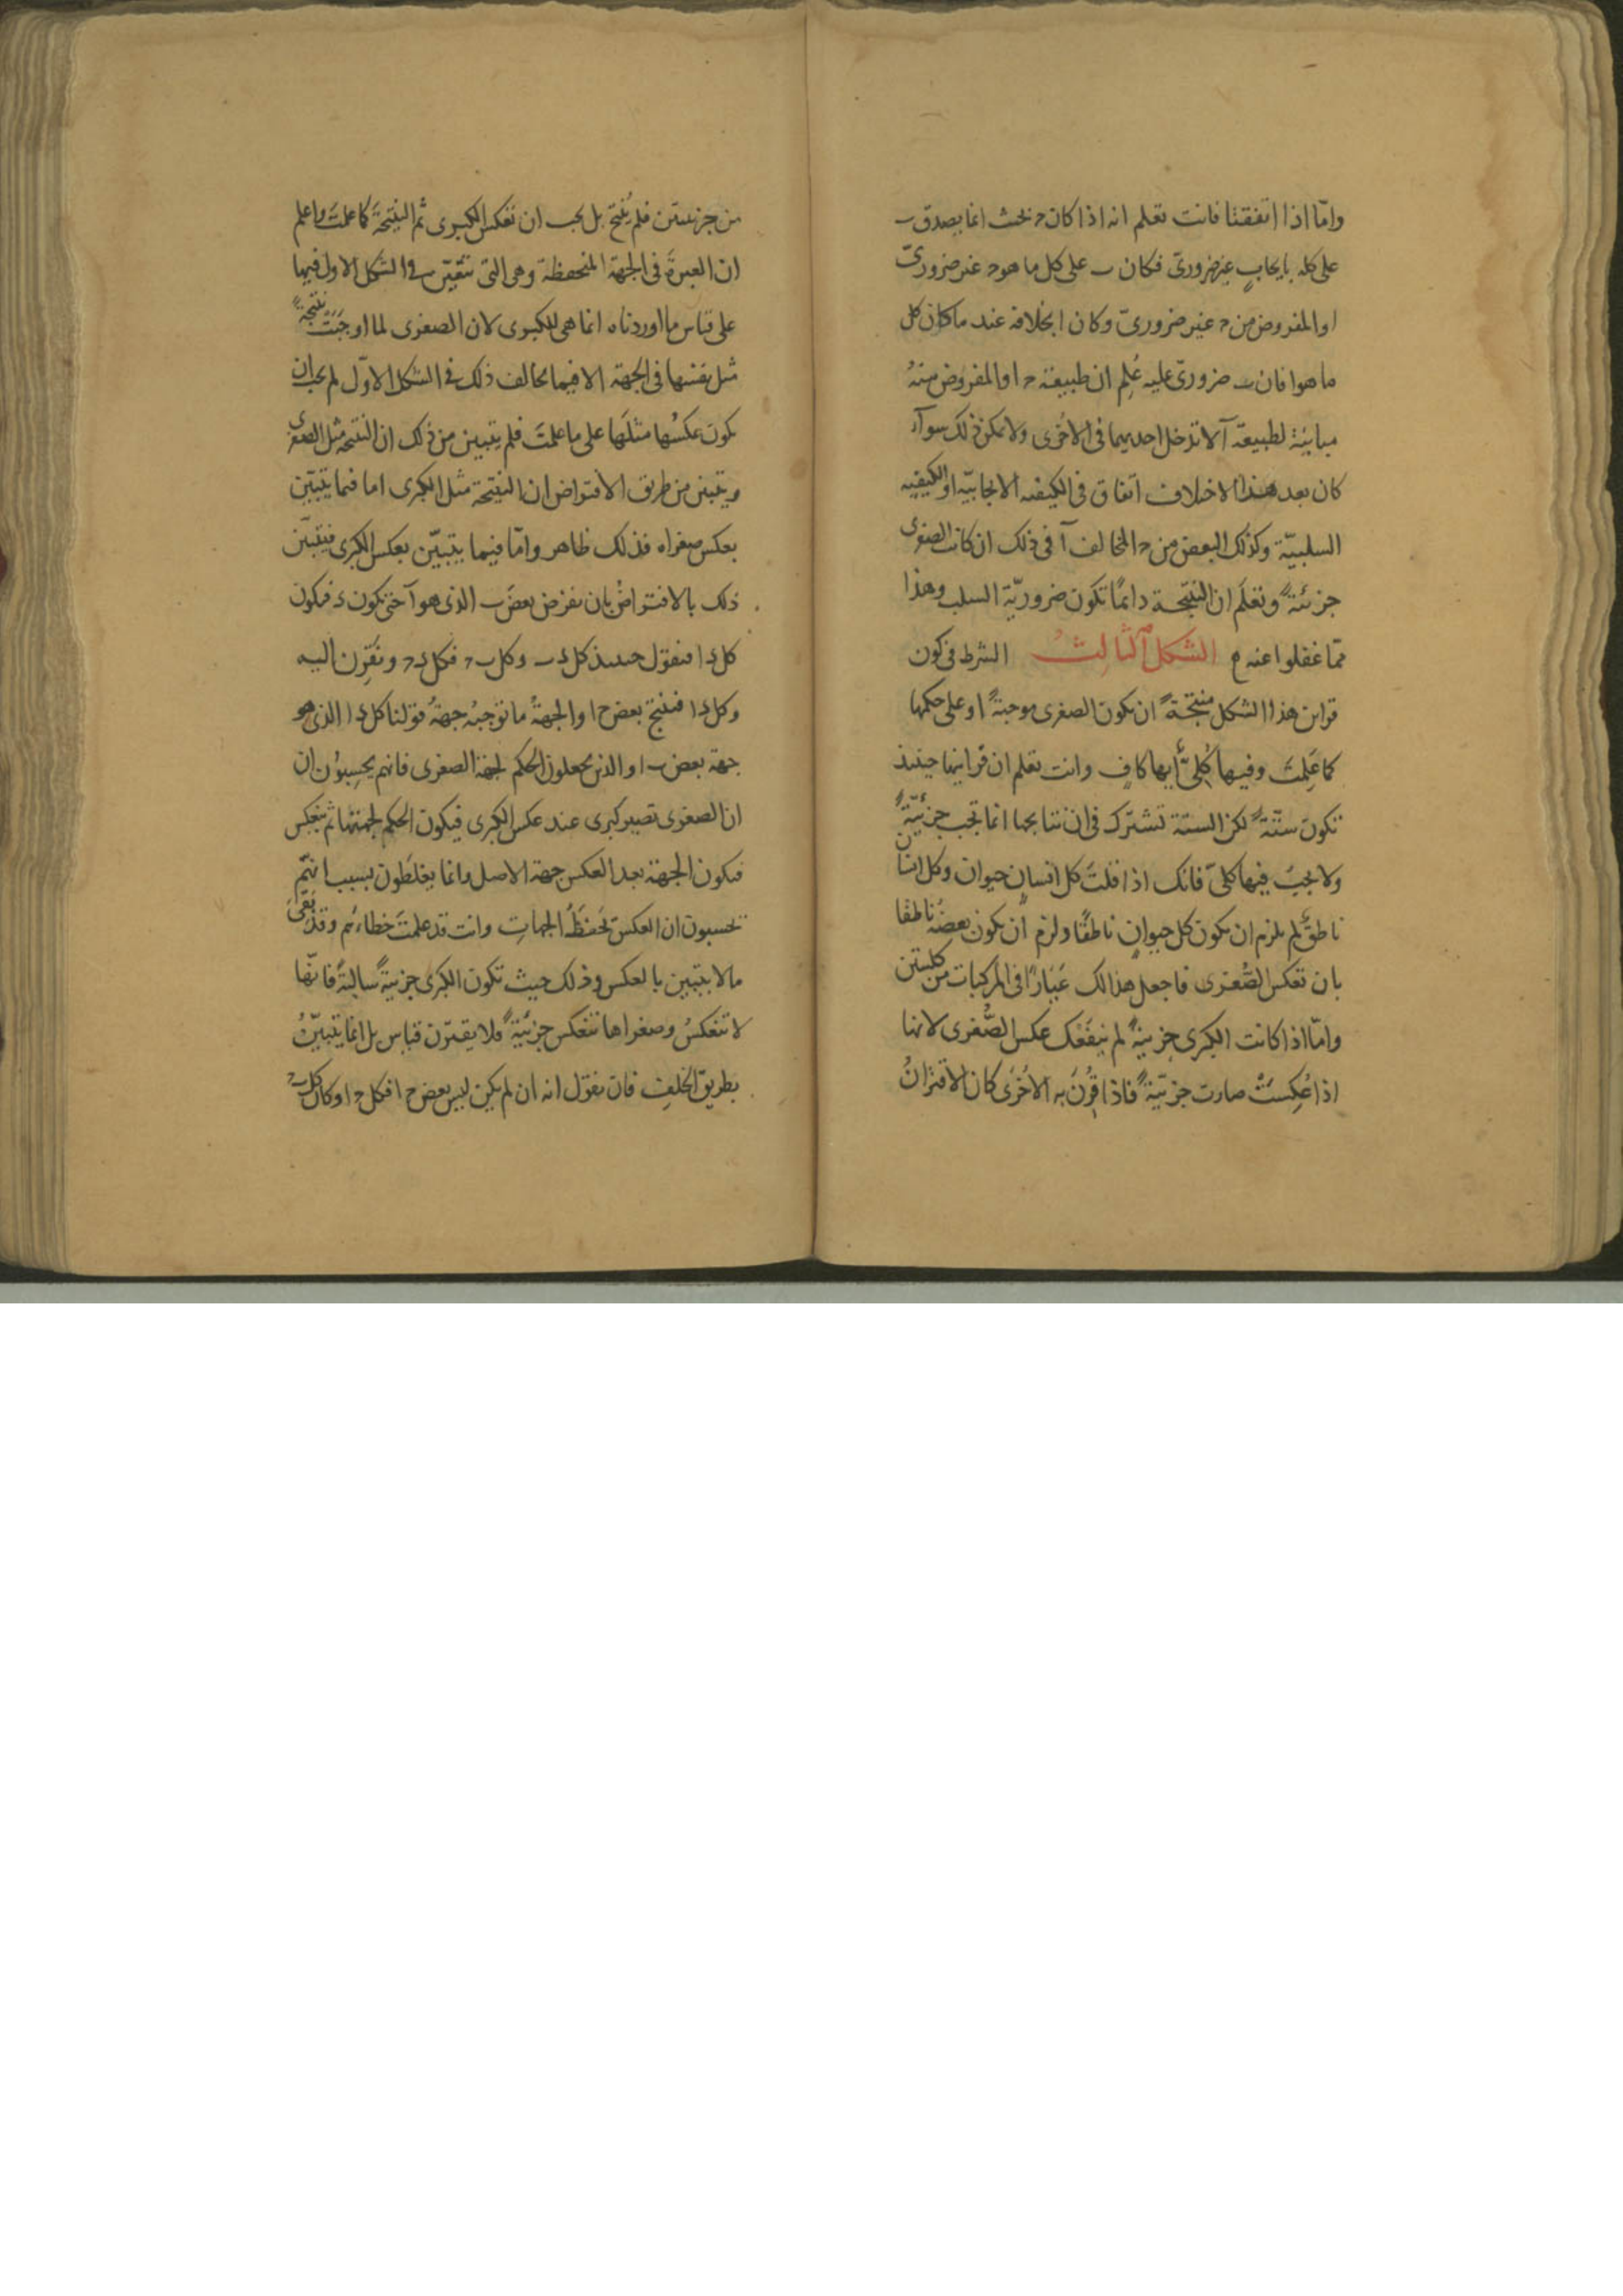 وامّا اذا اتفقتا فانت تعلم انه اذا كان ح بحيث انما يصدق ب
على كله بايجابٍ غير ضروريّ فكان ب على كل ما هو ح غير ضروريّ
او المفروض من ح غير ضروريّ وكان ا بخلافه عند ما كان كل
ما هو ا فان ب ضروريّ عليه عُلِم ان طبيعة ح او المفروض منهُ
مباينة لطبيعة آ لا تدخل احديهما في الاخرى ولا يمكن ذلك سوآء
كان بعد هذا الاختلاف اتفاق في الكيفيه الايجابيّه او الكيفيه
السلبيّة وكذلك البعض من ح المخالف آ في ذلك ان كانت الصغرى
جزئيّةً وتعلَم ان النتيجة دائمًا تكون ضروريّة السلب وهذا
ممّا غفلوا عنه الشكل الثالث الشرط في كون
قراين هذا الشكل منتجةً ان يكون الصغرى موجبةً او على حكمها
كما عَلِمتَ وفيها كُلِّيٌّ أيها كان وانت تعلم ان قراينها حينئذ
تكون ستّةً لكن الستة تشترك في ان نتايجها انما تجب جزئيّةً
ولا يجبُ فيها كليّ فانك اذا قلتَ كل انسانٍ حيوان وكل انسان
ناطقٌ لم يلزم ان يكون كل حيوانٍ ناطقًا ولزم ان يكون بعضهُ ناطقا
بان تعكس الصُّغرى فاجعل هذا لك عَيَارًا في المركبات من كليتين
وامّا اذا كانت الكبرى جزئيةً لم ينفَعك عكس الصُّغرى لانها
اذا عُكِسَتْ صارت جزئيّةً فاذا قُرِنَ به الاخُرى كان الاقترانُ
من جزئيتين فلم يُنتج بل يجب ان تعكس الكبرى ثم النتيجةَ كما علمتَ واعلم
ان العبرةَ في الجهة المنحفظة وهي التي تتعيّن في الشكل الاول فيها
على قياس ما اوردناه انما هي للكبرى لان الصغرى لما اوجَبَتْ نتيجةً
مثل نفسها في الجهة الا فيما يخالف ذلك في الشكل الاوّل لم يجب ان
يكون عكسُها مثلَها على ما علمتَ فلم يتبين من ذلك ان النتيجه مثل الصغرى
ويتبين من طريق الافتراض ان النتيجة مثل الكبرى اما فيما يتبيّن
بعكس صغراه فذلك ظاهر وامّا فيما يتبيّن بعكس الكبرى فيتبيّن
ذلك بالافتراضْ بان نفرض بعضَ ب الذي هو آ حتى يكون ءَ فيكون
كل ءَ ا فنقول حينئذ كل ءَ ب وكل ب ح فكل ءَ ح ونقرِن اليه
وكل ءَ ا فينتج بعض ح ا والجهةُ ما توجبُه جهةُ قولنا كل ءَ ا الذي هو
جهة بعض ب ا والذين يجعلون الحكم لجهة الصغرى فانهم يحسِبوُن ان
ان الصغرى تصير كبرى عند عكس الكبرى فيكون الحكم لجهتها ثم ينعكس
فيكون الجهة بعد العكس جهة الاصل وانما يغلَطون بسبب انهّم
يحسبون ان العكس يَحفظُ الجهاتِ وانت قد علمتَ خطاءَهم وقد بَقىَ
ما لا يتبين بالعكس وذلك حيث تكون الكبرى جزئيةً سالبةً فانهّا
لا تنعكسُ وصغراها تنعكس جزئيّةً فلا يقترن قياس بل انما يتبيّنُ
بطريق الخلف فان نقول انه ان لم يكن ليس بعض ح ا فكل ح ا وكان كل ب ح